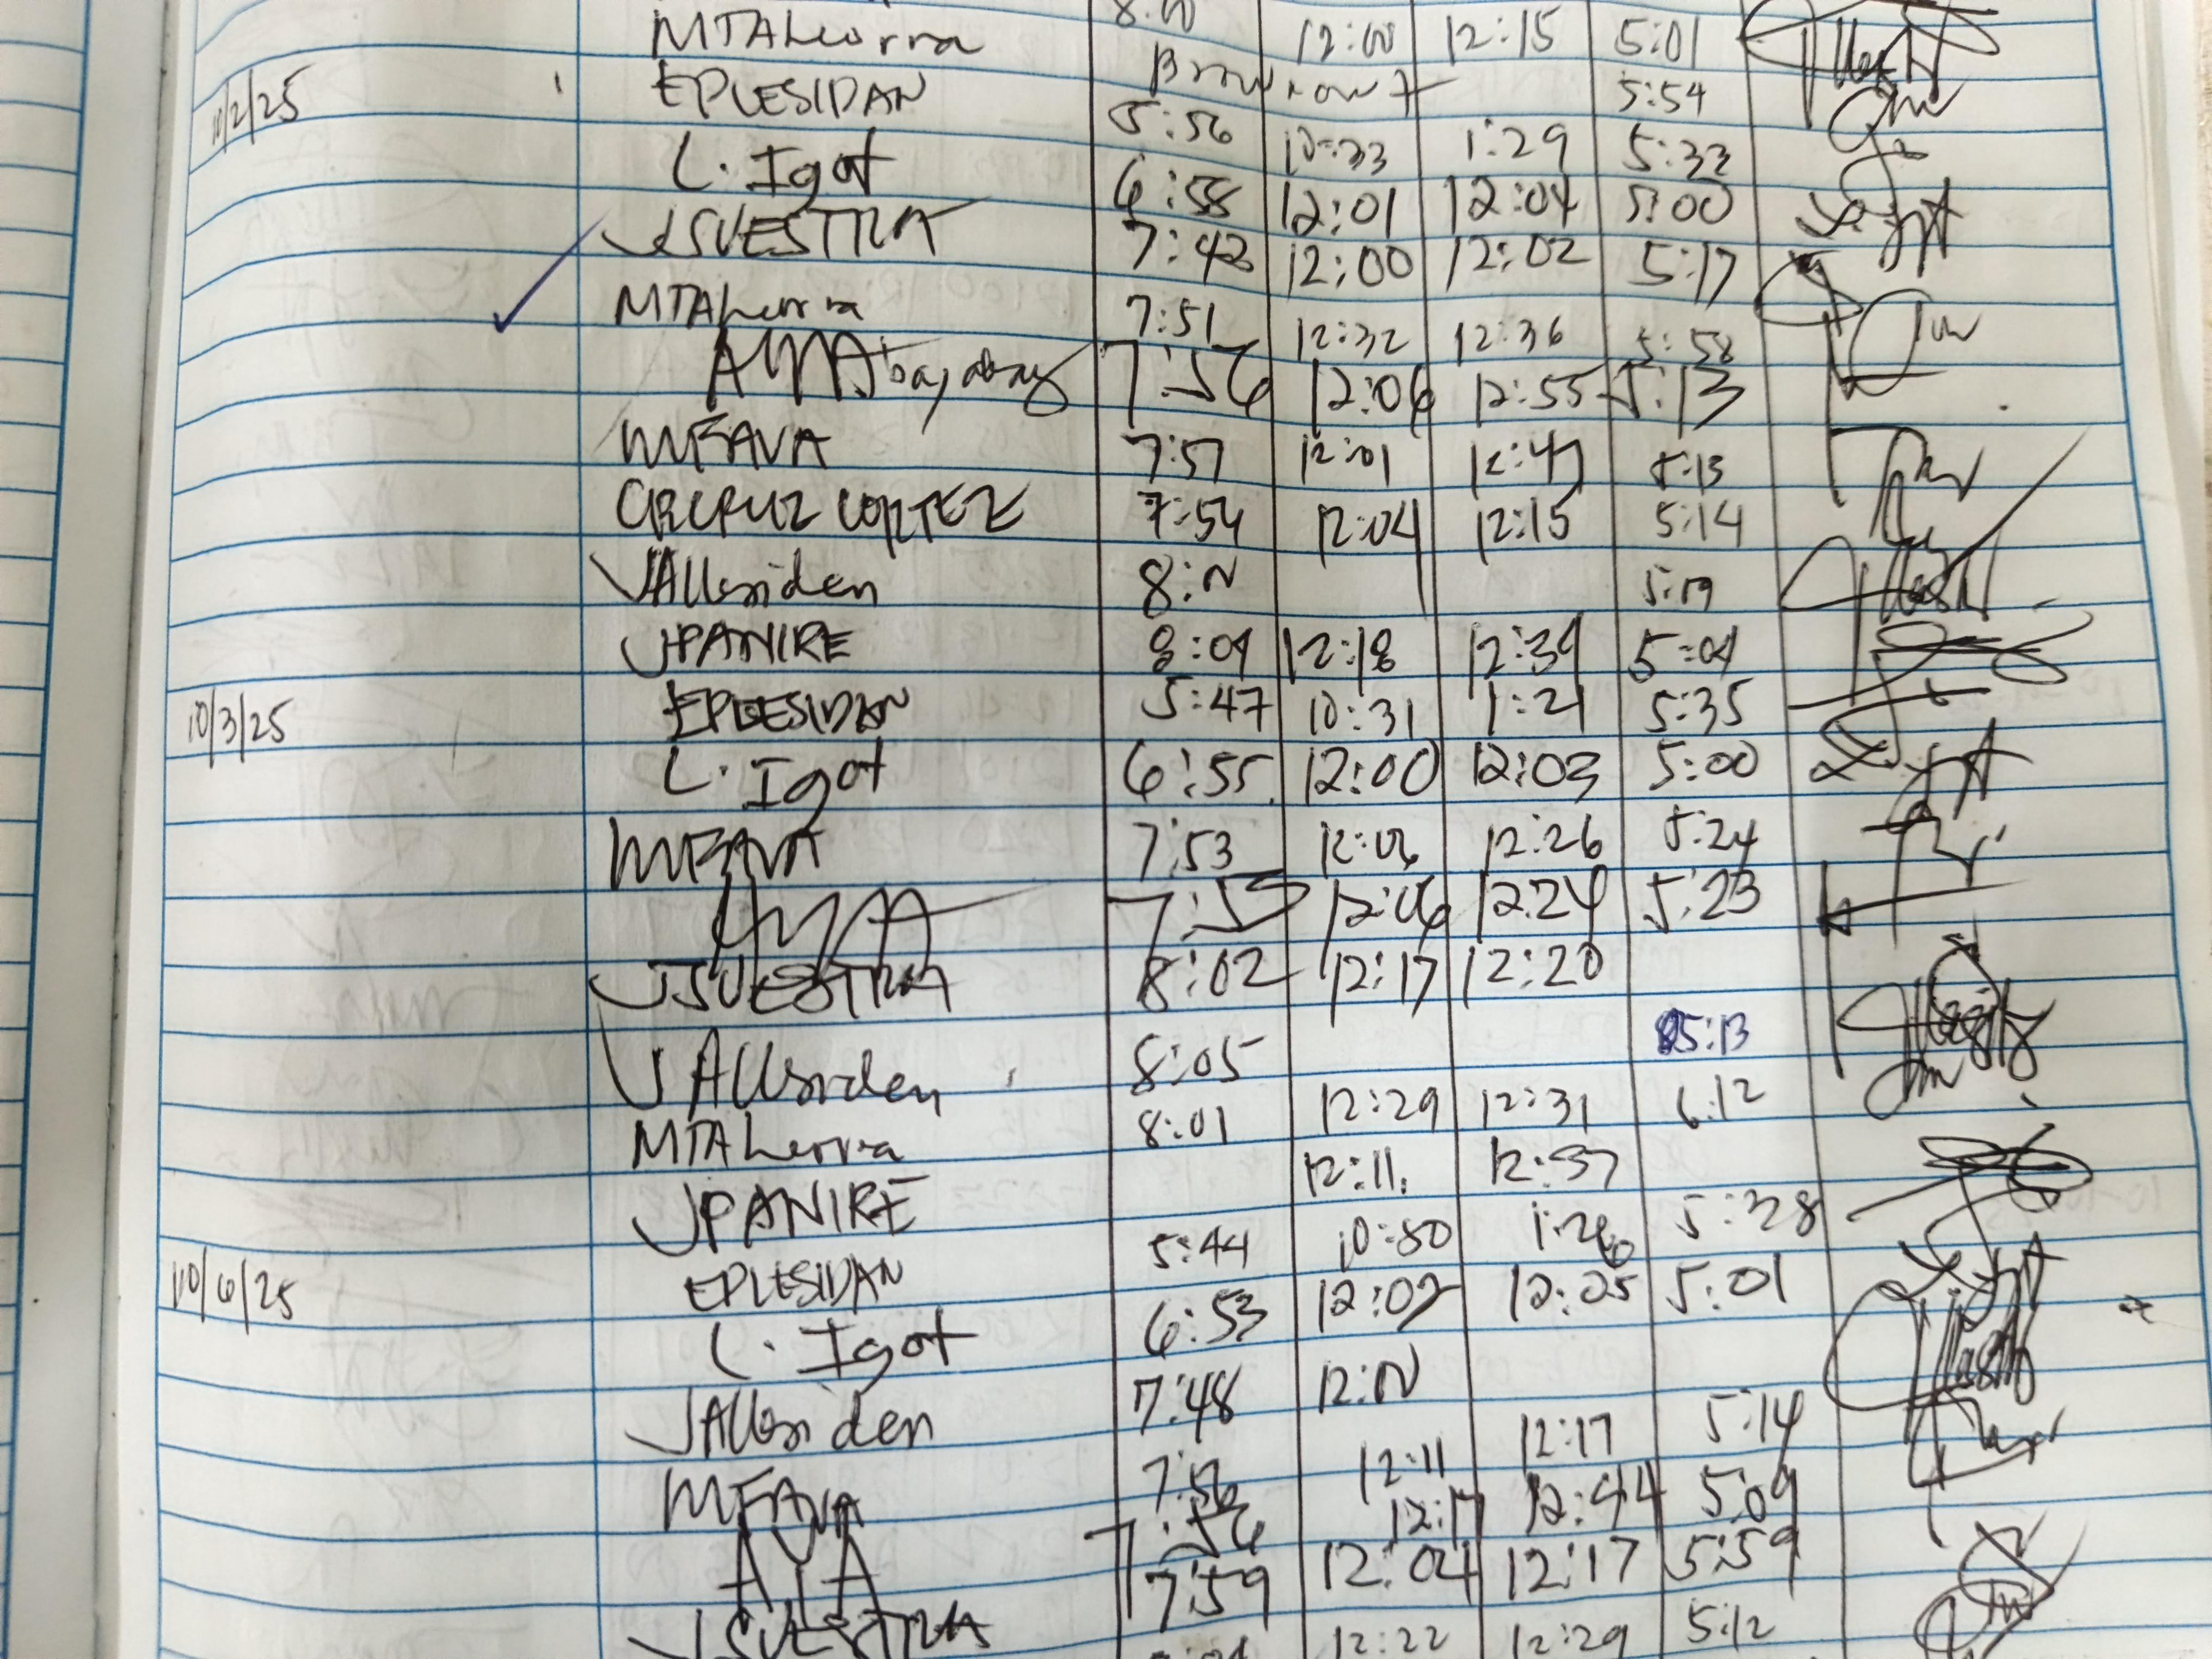 8:00
MTAherrra 12:00 12:15 5:01
Brownout 5:54
10/2/25 EPLESIDAN 5:56 10:33 1:29 5:33
L. Igot 6:58 12:01 12:04 5:00
JSVESTRA 7:42 12:00 12:02 5:17
MTAherrra 7:51 12:32 12:36 5:58
7:56 12:06 12:55 5:13
MFAVA 7:57 12:01 12:47 5:13
CRCRUZ CORTEZ 7:54 12:04 12:15 5:14
8:N 5:19
JPANIRE 8:09 12:18 12:39 5:04
10/3/25 EPLESIDAN 5:47 10:31 1:21 5:35
L. Igot 6:55 12:00 12:03 5:00
MFAVA 7:53 12:06 12:26 5:24
7:55 12:06 12:24 5:23
JSVESTRA 8:02 12:17 12:20
8:05 5:13
MTAherrra 8:01 12:29 12:31 6:12
JPANIRE 12:11 12:37
10/6/25 EPLESIDAN 5:44 10:30 1:26 5:28
L. Igot 6:53 12:02 12:05 5:01
7:48 12:N
MFAVA 7:56 12:11 12:17 5:14
AYA 7:56 12:17 12:44 5:09
JSVESTRA 7:59 12:04 12:17 5:59
12:22 12:29 5:12